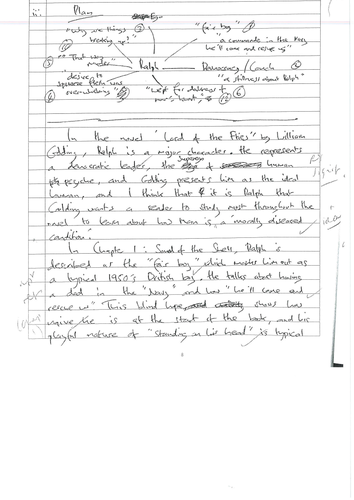 Plan
"why are things breaking up?"
"fair boy"
"a commander in the Navy
he'll come and rescue us"
Ralph
Democracy / Conch
"a stillness about Ralph"
desire to
"wept for darkness of
man's heart"
In the novel "Lord of the Flies" by William
Golding, Ralph is a major character. He represents
a democratic leader, the Superego of human
psyche, and Golding presents him as the ideal
human, and I think that it is Ralph that
Golding wants a reader to study most throughout the
novel to learn about how man is a "morally diseased
condition".
In Chapter 1: Sound of the Shell, Ralph is
described as the "fair boy" which marks him out as
a typical 1950s British boy. He talks about having
a dad in the "Navy" and how "he'll come and
rescue us" This blind hope, shows how
naive he is at the start of the book, and his
playful nature of "standing on his head" is typical